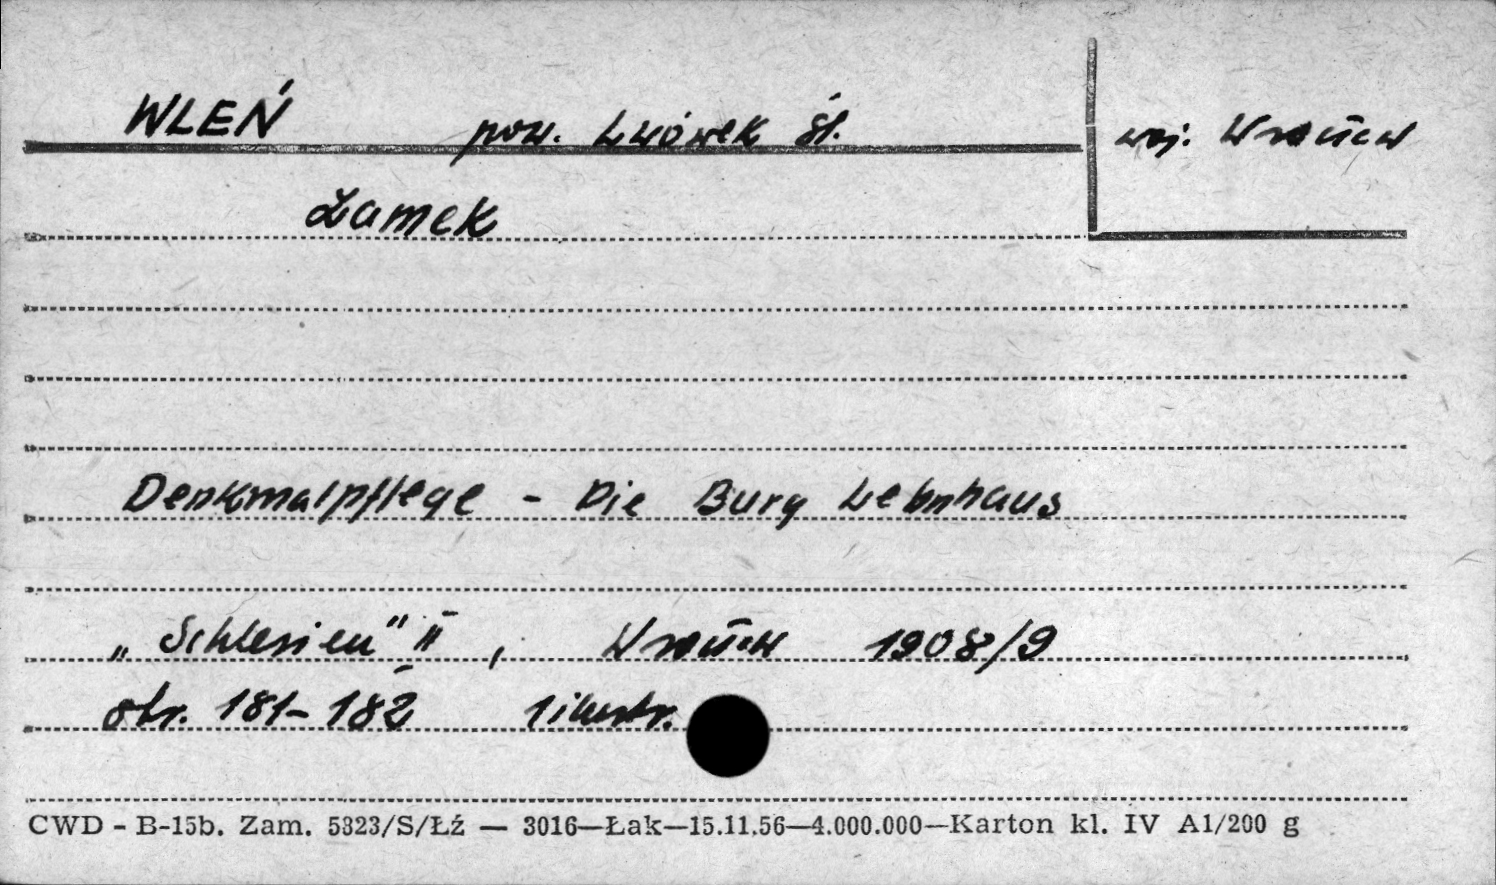 WLEŃ pow. Lwówek Śl. woj. Wrocław
Zamek
Denkmalpflege - Die Burg Lehnhaus
„Schlesien" II, Wrocław 1908/9
str. 181-182 1 ilustr.
CWD - B-15b. Zam. 5323/S/Łź — 3016—Łak—15.11.56—4.000.000—Karton kl. IV A1/200 g